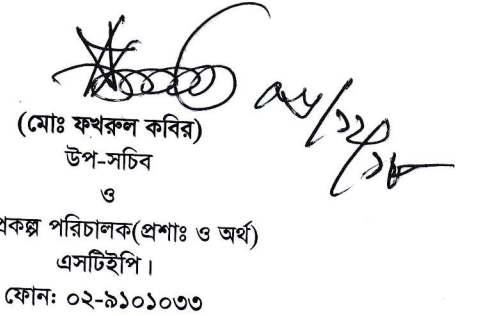 (মোঃ ফখরুল কবির)
উপ-সচিব
ও
প্রকল্প পরিচালক(প্রশাঃ ও অর্থ)
এসটিইপি।
ফোন: ০২-৯১০১০৩৩